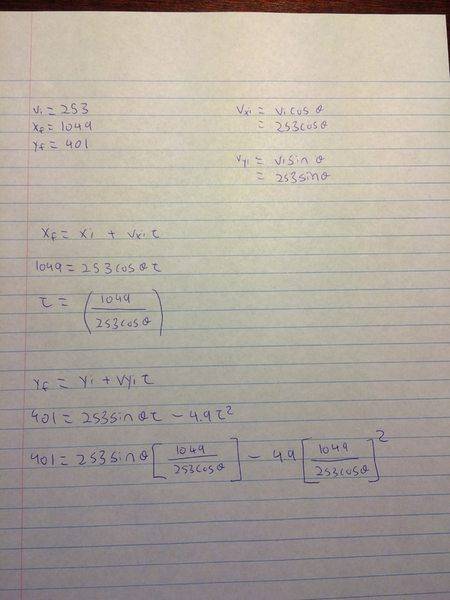 vi = 253
xf = 1049
yf = 401
vxi = vicosθ
= 253cosθ
vyi = visinθ
= 253sinθ
xf = xi + vxiτ
1049 = 253cosθτ
τ = (1049/253cosθ)
yf = yi + vyiτ
401 = 253sinθτ - 4.9τ²
401 = 253sinθ[1049/253cosθ] - 4.9[1049/253cosθ]²